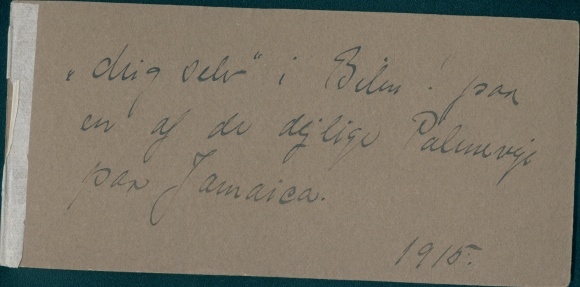 „dig selv“ i Bilen! paa
en af de dejlige Palmeveje
paa Jamaica.
1915.